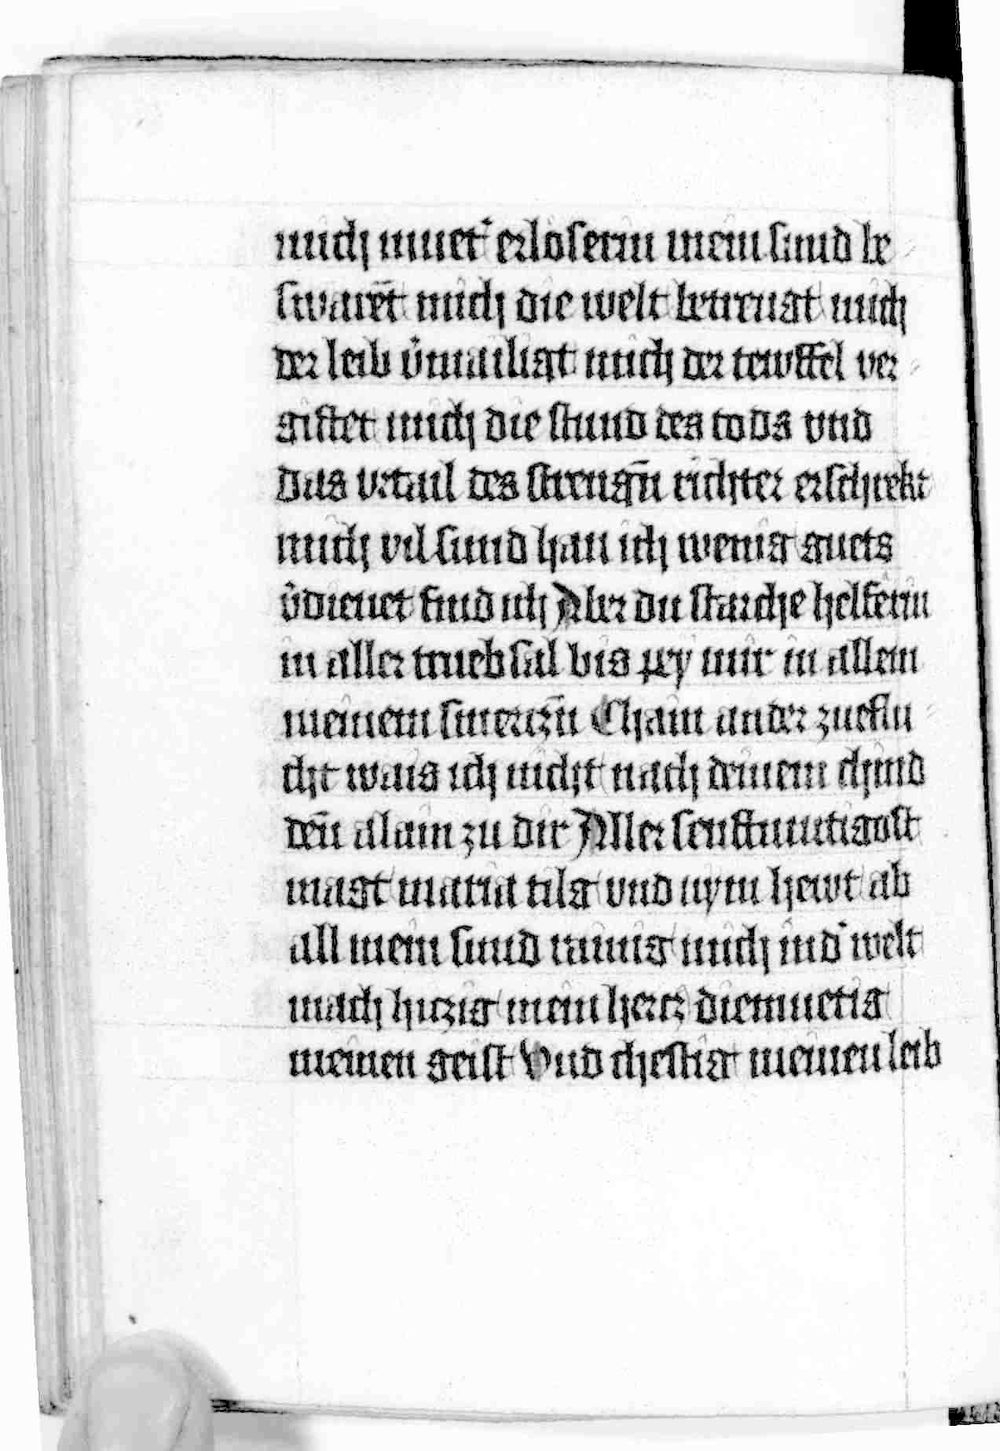 mich muet' erloserin mein sund be
swarēt mich die welt betreugt mich
der leib v̾mailigt mich der tewffel ver
giftet mich die stund des tods vnd
das vrtail des strengn̄ richter erschrekt
mich vil sund han ich wenig guets
v̾dienet find ich Aber du starche helferin
in aller truebsal bis pey mir in allem
meinem smerczn̄ Chain ander zueflu
cht wais ich nicht nach deinem chind
den̄ alain zu dir Aller senftmutigost
magt maria tilg vnd nym hewt ab
all mein sund rainig mich in d' welt
mach hiczig mein hercz diemuetig
meinen geist Vnd chestig meinen leib